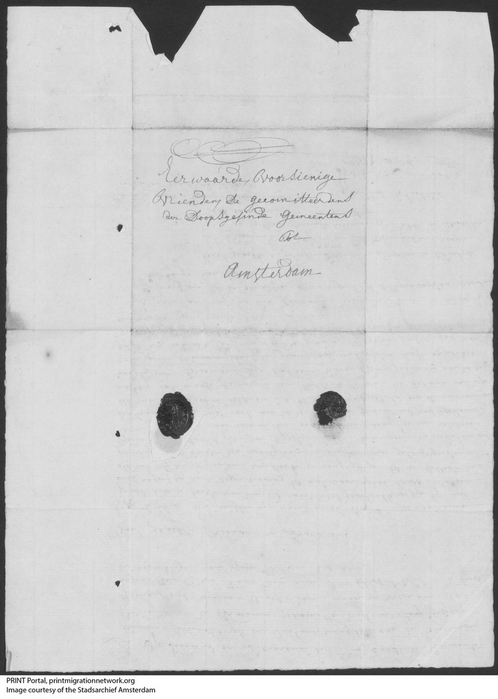 Eerwaarde, Voorsienige
Vrienden de gecomitteerdens
der Doopsgesinde gemeentens
tot
Amsterdam
PRINT Portal, printmigrationnetwork.org
Image courtesy of the Stadsarchief Amsterdam